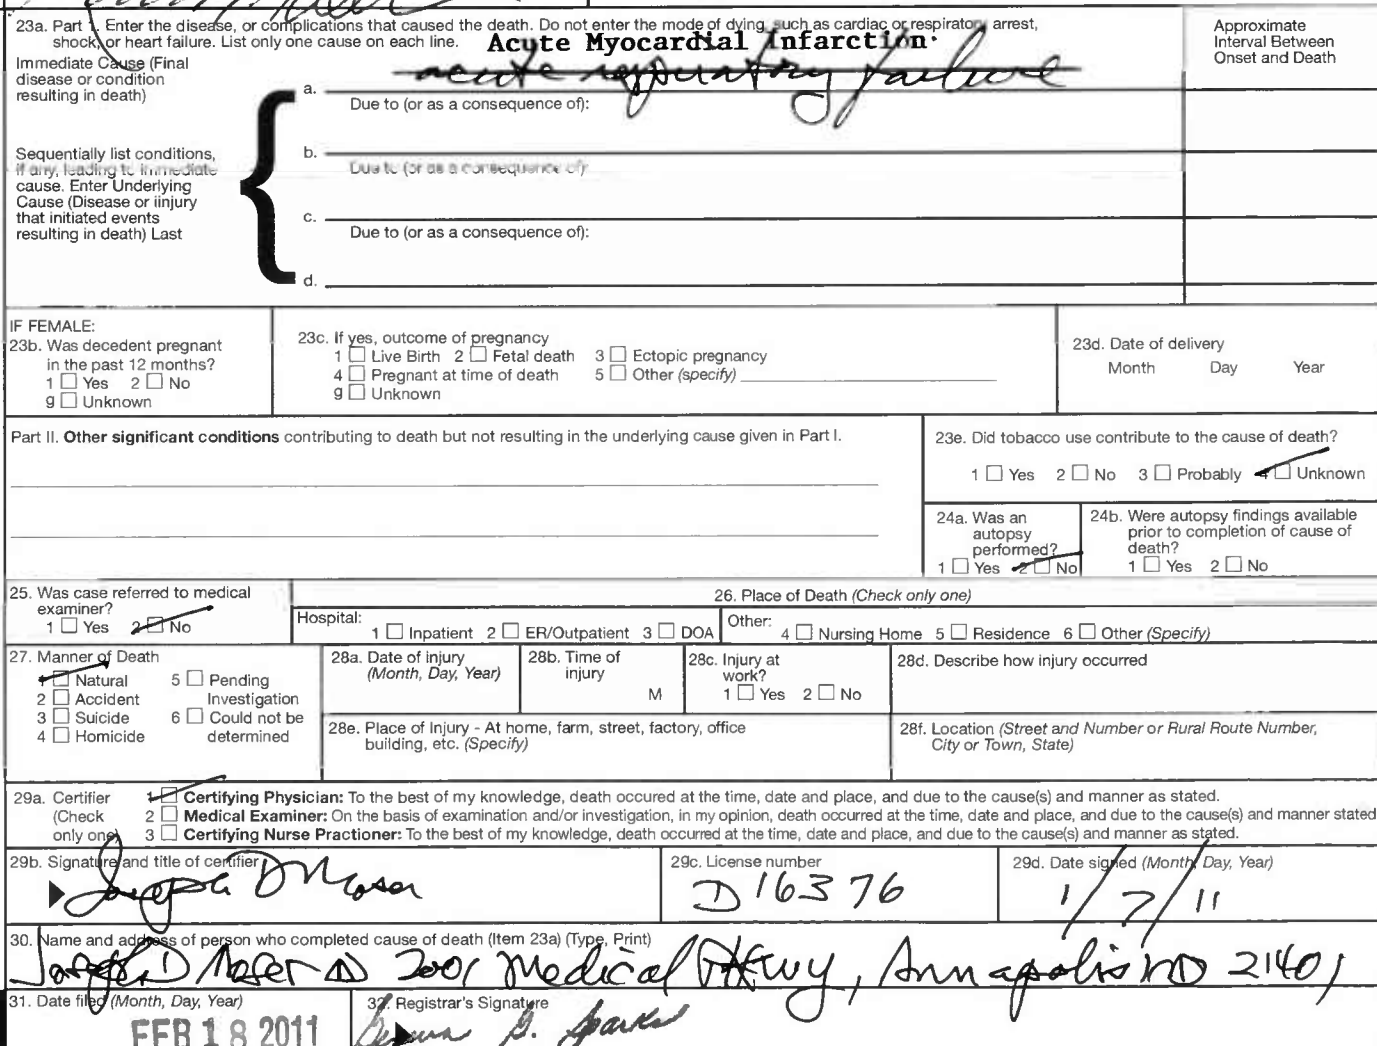 23a. Part I. Enter the disease, or complications that caused the death. Do not enter the mode of dying, such as cardiac or respiratory arrest,
shock, or heart failure. List only one cause on each line.
Acute Myocardial Infarction.
Approximate
Interval Between
Onset and Death
Immediate Cause (Final
disease or condition
resulting in death)
a. acute respiratory failure
Due to (or as a consequence of):
Sequentially list conditions,
if any, leading to immediate
cause. Enter Underlying
Cause (Disease or iinjury
that initiated events
resulting in death) Last
b.
Due to (or as a consequence of):
c.
Due to (or as a consequence of):
d.
IF FEMALE:
23b. Was decedent pregnant
in the past 12 months?
1 ☐ Yes 2 ☐ No
9 ☐ Unknown
23c. If yes, outcome of pregnancy
1 ☐ Live Birth 2 ☐ Fetal death 3 ☐ Ectopic pregnancy
4 ☐ Pregnant at time of death 5 ☐ Other (specify)
9 ☐ Unknown
23d. Date of delivery
Month Day Year
Part II. Other significant conditions contributing to death but not resulting in the underlying cause given in Part I.
23e. Did tobacco use contribute to the cause of death?
1 ☐ Yes 2 ☐ No 3 ☐ Probably 4 ☐ Unknown
24a. Was an
autopsy
performed?
1 ☐ Yes 2 ☐ No
24b. Were autopsy findings available
prior to completion of cause of
death?
1 ☐ Yes 2 ☐ No
25. Was case referred to medical
examiner?
1 ☐ Yes 2 ☐ No
26. Place of Death (Check only one)
Hospital: 1 ☐ Inpatient 2 ☐ ER/Outpatient 3 ☐ DOA
Other: 4 ☐ Nursing Home 5 ☐ Residence 6 ☐ Other (Specify)
27. Manner of Death
1 ☐ Natural 5 ☐ Pending
2 ☐ Accident Investigation
3 ☐ Suicide 6 ☐ Could not be
4 ☐ Homicide determined
28a. Date of injury
(Month, Day, Year)
28b. Time of
injury
M
28c. Injury at
work?
1 ☐ Yes 2 ☐ No
28d. Describe how injury occurred
28e. Place of Injury - At home, farm, street, factory, office
building, etc. (Specify)
28f. Location (Street and Number or Rural Route Number,
City or Town, State)
29a. Certifier
(Check
only one)
1 ☐ Certifying Physician: To the best of my knowledge, death occured at the time, date and place, and due to the cause(s) and manner as stated.
2 ☐ Medical Examiner: On the basis of examination and/or investigation, in my opinion, death occurred at the time, date and place, and due to the cause(s) and manner stated
3 ☐ Certifying Nurse Practioner: To the best of my knowledge, death occurred at the time, date and place, and due to the cause(s) and manner as stated.
29b. Signature and title of certifier
Joseph D Moser
29c. License number
D16376
29d. Date signed (Month, Day, Year)
1/7/11
30. Name and address of person who completed cause of death (Item 23a) (Type, Print)
Joseph D Moser MD 2001 Medical Pkwy, Annapolis MD 21401
31. Date filed (Month, Day, Year)
FEB 18 2011
32. Registrar's Signature
S. Sparks